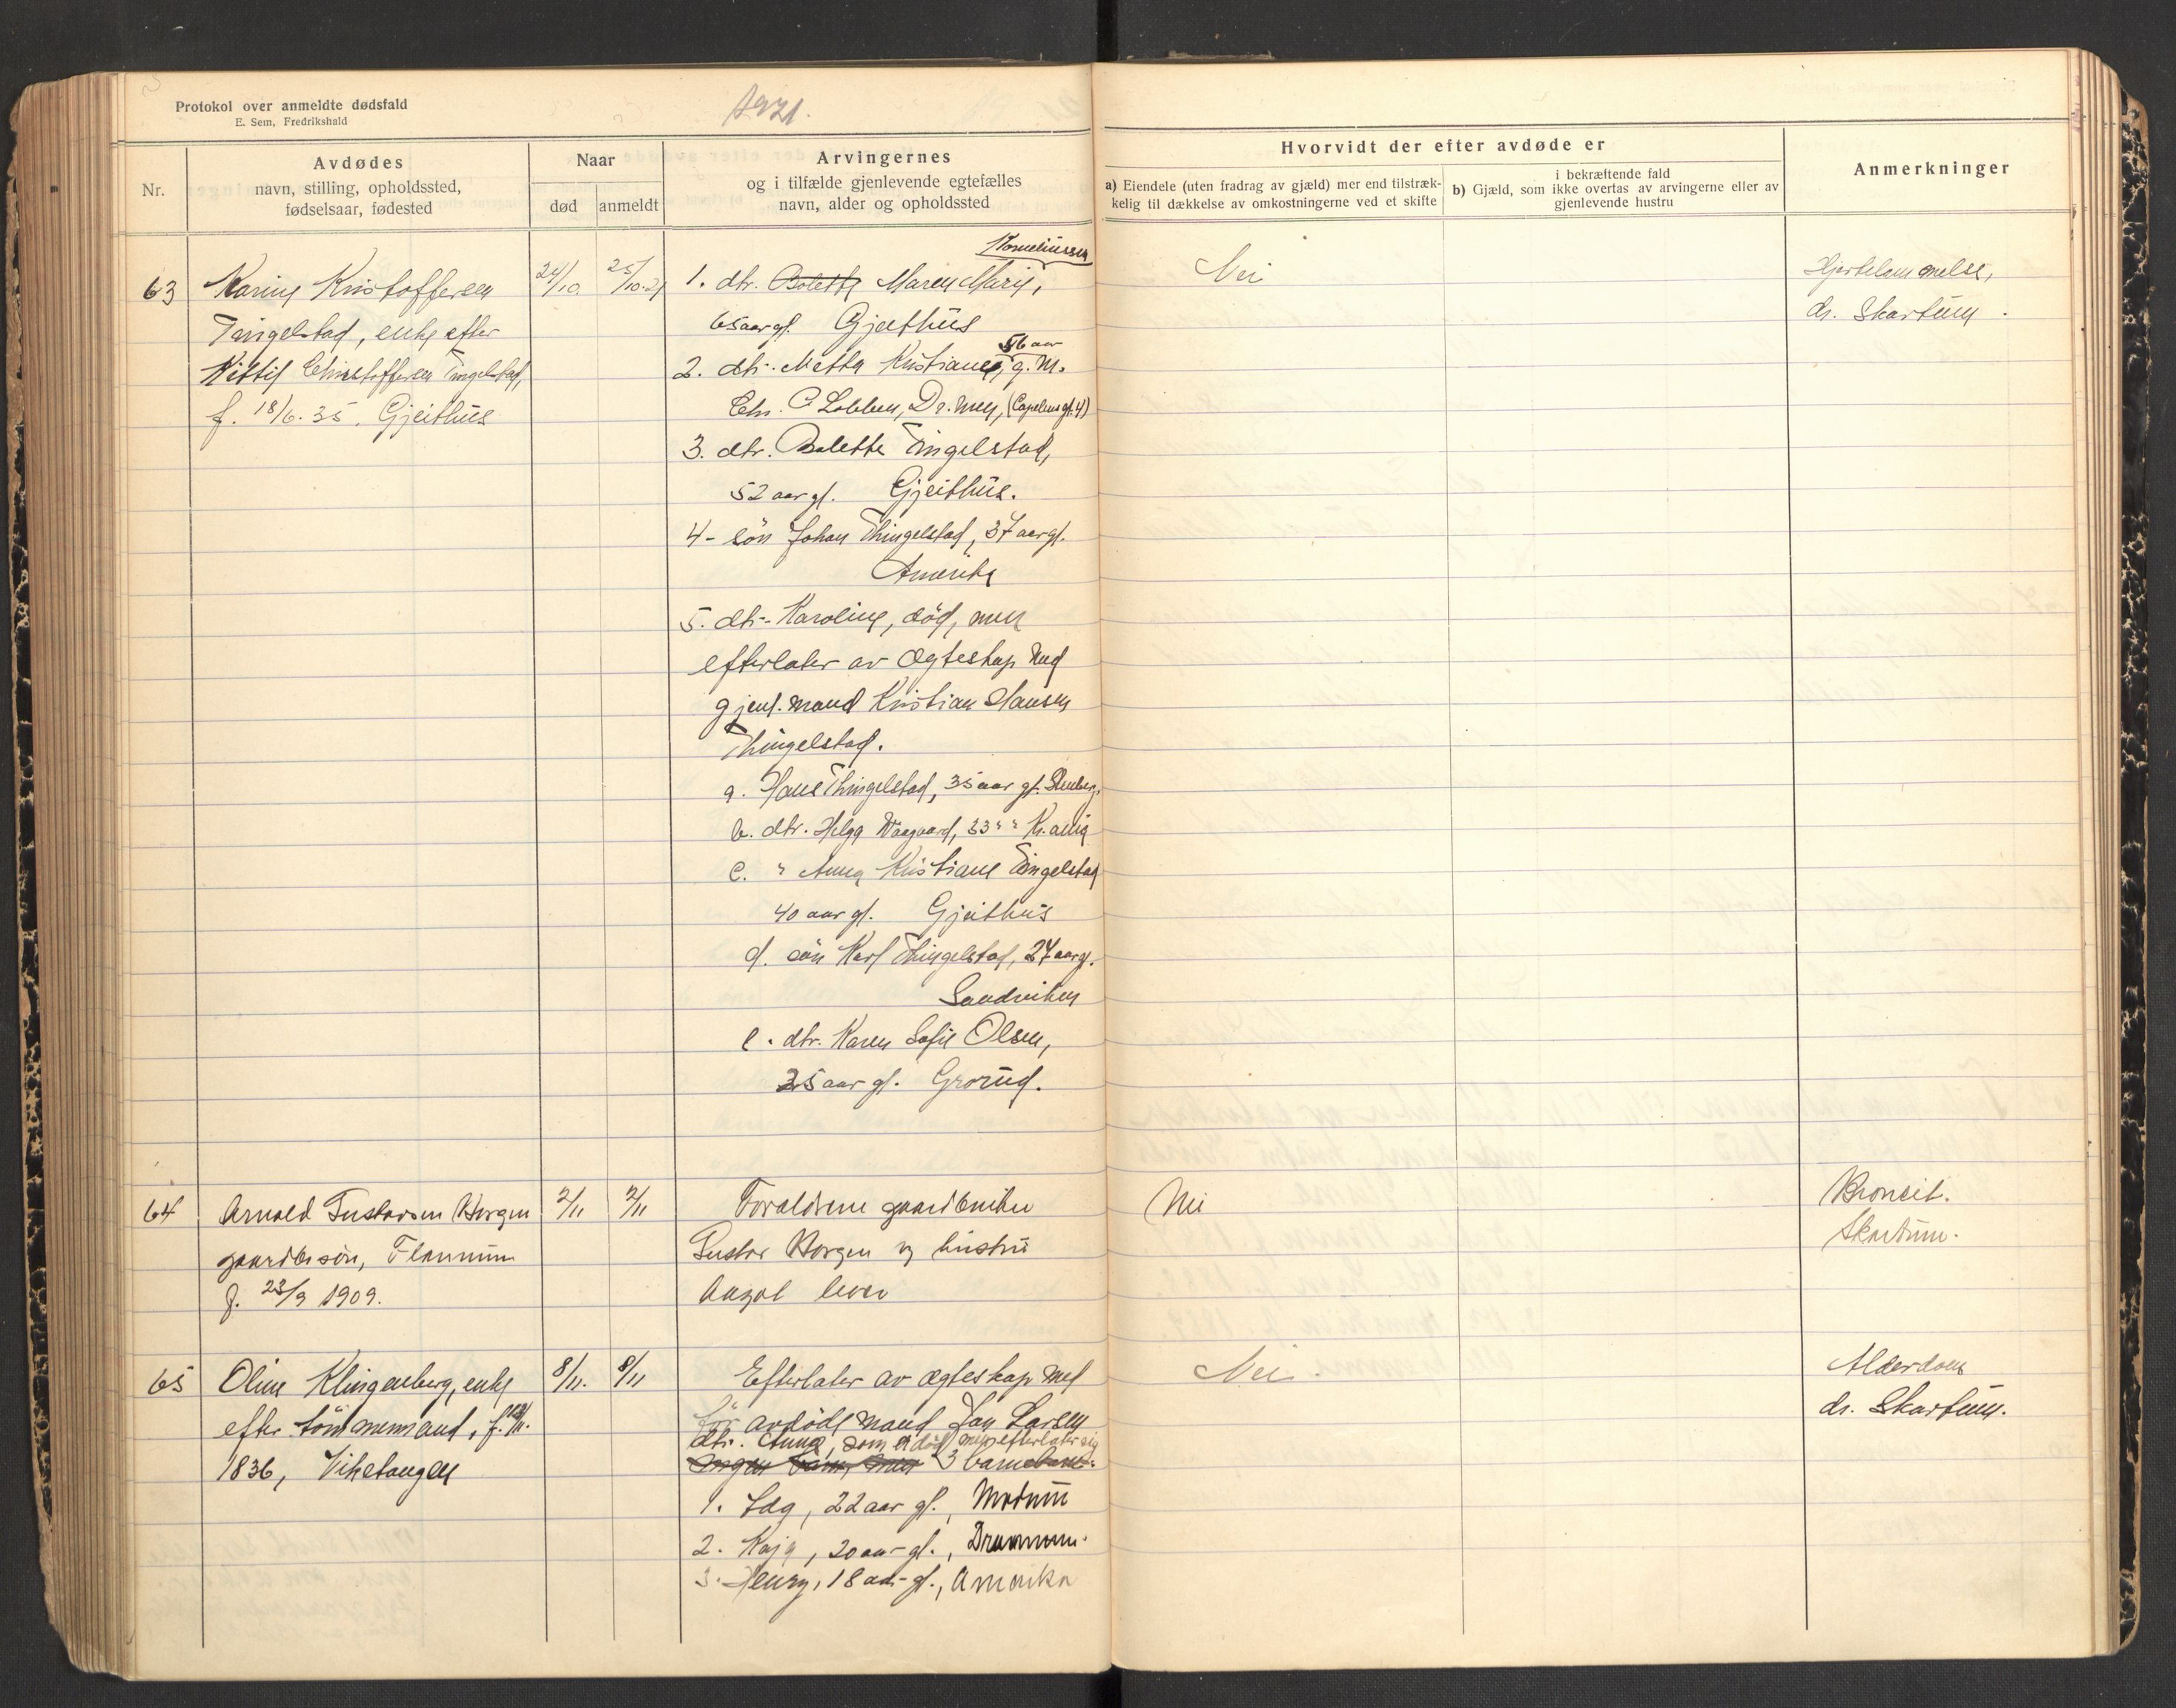 Protokol over anmeldte dødsfald
E. Sem, Fredrikshald
1921.
Nr.
Avdødes
navn, stilling, opholdssted,
fødselsaar, fødested
Naar
død
anmeldt
Arvingernes
og i tilfælde gjenlevende egtefælles
navn, alder og opholdssted
Hvorvidt der efter avdøde er
a) Eiendele (uten fradrag av gjæld) mer end tilstræk-
kelig til dækkelse av omkostningerne ved et skifte
i bekræftende fald
b) Gjæld, som ikke overtas av arvingerne eller av
gjenlevende hustru
Anmerkninger
63
Karine Kristoffersen
Tingelstad, enke efter
Kittil Christoffersen Tingelstad,
f. 18/6. 35. Gjeithus
24/10.
25/10.21
Korneliussen
1. dtr. Bolette Maren Marie,
65 aar gl. Gjeithus
56 aar
2. dtr. Mette Kristiane, g. m.
Chr. C. Lobben, Dr.men, (Capelens gt. 4)
3. dtr. Bolette Tingelstad,
52 aar gl. Gjeithus.
4- søn Johan Thingelstad, 37 aar gl.
Amerika
5. dtr. Karoline, död, men
efterlater av Ægteskap med
gjenl. mand Kristian Hansen
Thingelstad.
a. Hans Thingelstad, 35 aar gl. Stenberg.
b. dtr. Helga Waagaard, 33 " " Kr.ania
c. " Anna Kristiane Tingelstad
40 aar gl. Gjeithus
d. sön Karl Thingelstad, 27 aar gl.
Sandviken
e. dtr. Karen Sofie Olsen,
25 aar gl. Grorud.
Nei
Hjertelammelse,
dr. Skartum.
64
Arnold Gustavsen Horgen
gaardbrsøn, Flannum
f. 23/9 1909.
2/11
2/11
Forældrene gaardbruker
Gustav Horgen og hustru
lever
Nei
Broncit.
Skartum.
65
Oline Klingenberg, enke
efter tömmermand, f.
1836, Viketangen
8/11.
8/11
Efterlater av ægteskap med
för avdöde mand Jan Larsen
dtr. Anna, som er död men efterlater sig
ingen barn, men 3 barnebarn.
1. Dag, 22 aar gl., Modum
2. Kaja, 20 aar gl., Drammen.
3. Henry, 18 aar gl., Amerika
Nei.
Alderdom
dr. Skartum.